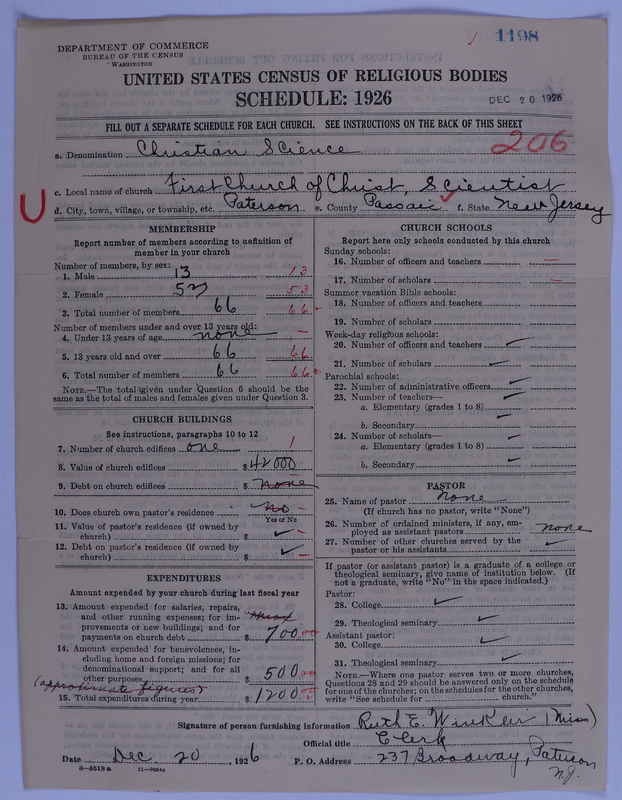 1198
DEPARTMENT OF COMMERCE
BUREAU OF THE CENSUS
WASHINGTON
UNITED STATES CENSUS OF RELIGIOUS BODIES
SCHEDULE: 1926
DEC 20 1926
FILL OUT A SEPARATE SCHEDULE FOR EACH CHURCH. SEE INSTRUCTIONS ON THE BACK OF THIS SHEET
206
a. Denomination Christian Science
c. Local name of church First Church of Christ, Scientist
U
d. City, town, village, or township, etc. Paterson e. County Passaic f. State New Jersey
MEMBERSHIP
Report number of members according to definition of
member in your church
Number of members, by sex:
1. Male 13 13
2. Female 53 53
3. Total number of members 66 66
Number of members under and over 13 years old:
4. Under 13 years of age none —
5. 13 years old and over 66 66
6. Total number of members 66 66
NOTE.—The total given under Question 6 should be the
same as the total of males and females given under Question 3.
CHURCH BUILDINGS
See instructions, paragraphs 10 to 12
7. Number of church edifices one 1
8. Value of church edifices $ 42000
9. Debt on church edifices $ none
10. Does church own pastor's residence no
Yes or No
11. Value of pastor's residence (if owned by
church) $ ✓
12. Debt on pastor's residence (if owned by
church) $ ✓
EXPENDITURES
Amount expended by your church during last fiscal year
13. Amount expended for salaries, repairs,
and other running expenses; for im-
provements or new buildings; and for
payments on church debt $ 700 00
14. Amount expended for benevolences, in-
cluding home and foreign missions; for
denominational support; and for all
other purposes $ 500 00
(approximate figures)
15. Total expenditures during year $ 1200 00
CHURCH SCHOOLS
Report here only schools conducted by this church
Sunday schools:
16. Number of officers and teachers —
17. Number of scholars —
Summer vacation Bible schools:
18. Number of officers and teachers
19. Number of scholars
Week-day religious schools:
20. Number of officers and teachers ✓
21. Number of scholars ✓
Parochial schools:
22. Number of administrative officers ✓
23. Number of teachers— ✓
a. Elementary (grades 1 to 8)
b. Secondary ✓
24. Number of scholars— ✓
a. Elementary (grades 1 to 8) ✓
b. Secondary ✓
PASTOR
25. Name of pastor none
(If church has no pastor, write "None")
26. Number of ordained ministers, if any, em-
ployed as assistant pastors none
27. Number of other churches served by the
pastor or his assistants ✓
If pastor (or assistant pastor) is a graduate of a college or
theological seminary, give name of institution below. (If
not a graduate, write "No" in the space indicated.)
Pastor:
28. College ✓
29. Theological seminary ✓
Assistant pastor:
30. College ✓
31. Theological seminary ✓
NOTE.—Where one pastor serves two or more churches,
Questions 28 and 29 should be answered only on the schedule
for one of the churches; on the schedules for the other churches,
write "See schedule for church."
Signature of person furnishing information Ruth E. Winkler (Miss)
Official title Clerk
Date Dec 20, 1926 P. O. Address 237 Broadway, Paterson
N.J.
8—5518a